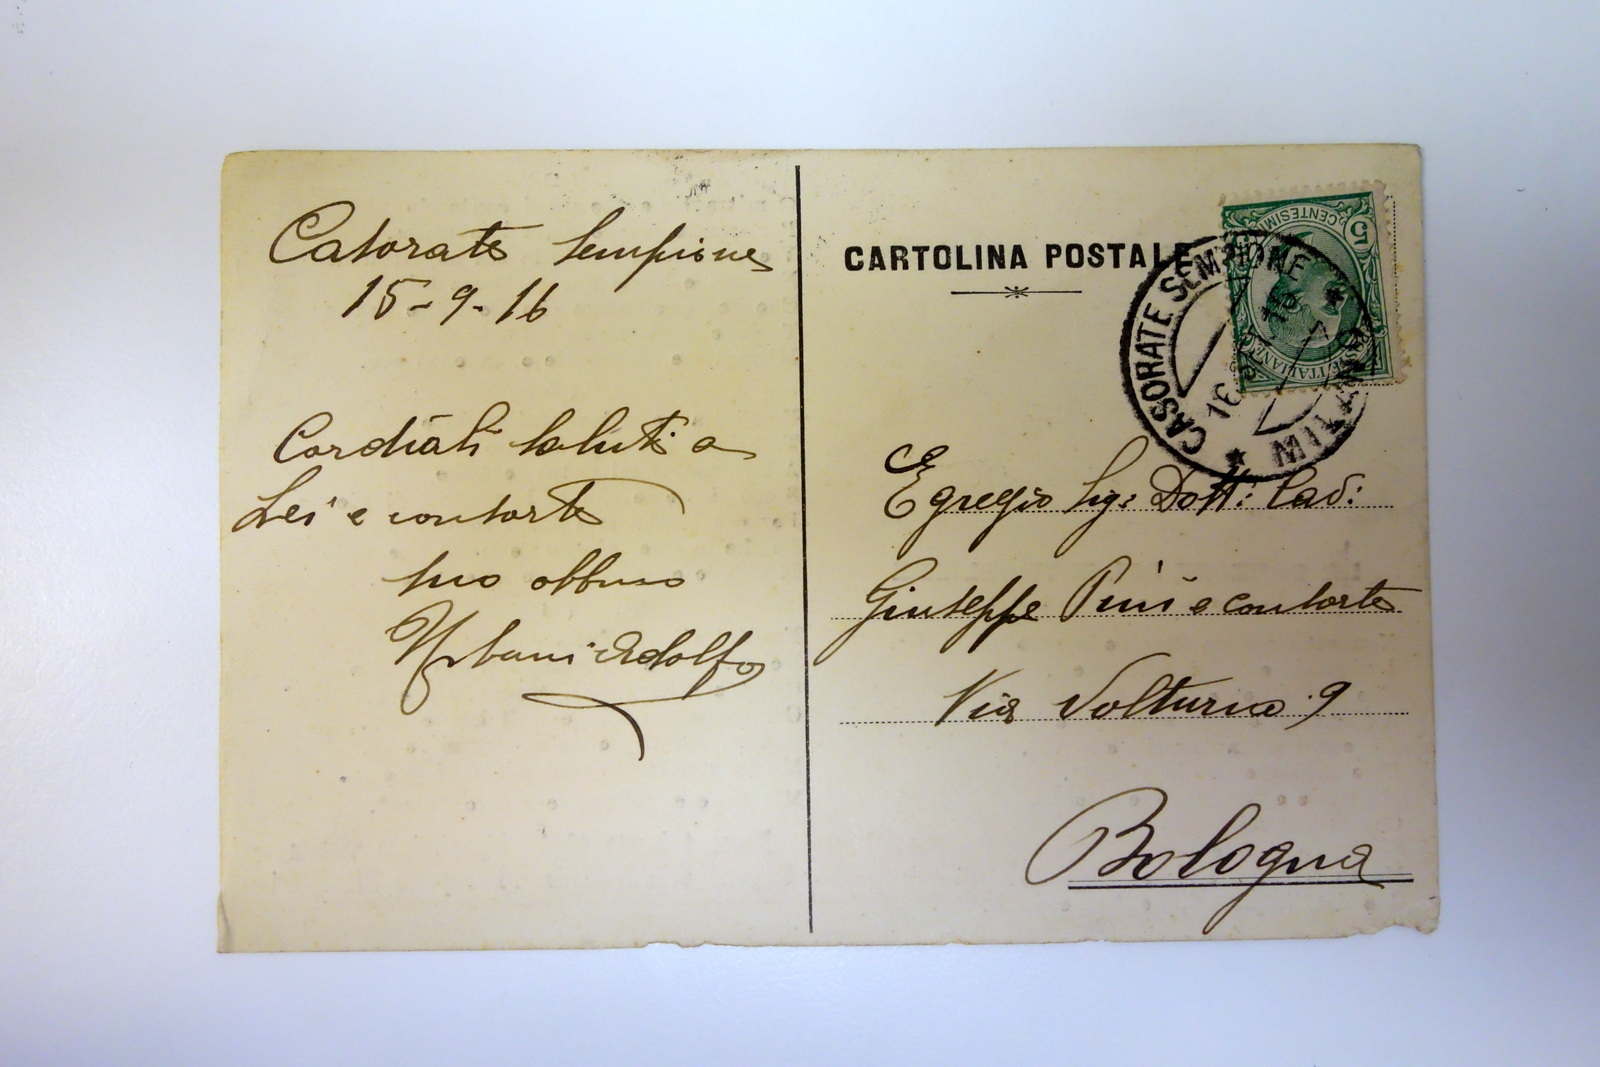 Casorate Sempione
15-9-16
Cordiali saluti a
Lei e consorte
suo obbmo
Urbani Adolfo
CARTOLINA POSTALE
CASORATE SEMPIONE
MILANO
16
5 CENTESIMI
POSTE ITALIANE
Egregio Sig: Dott: Cav:
Giuseppe Pini e consorte
Via Volturno 9
Bologna